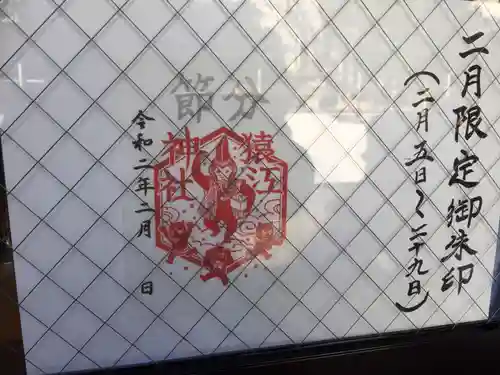 二月限定御朱印
(二月五日〜二十九日)
節分
猿江
神社
令和二年二月 日